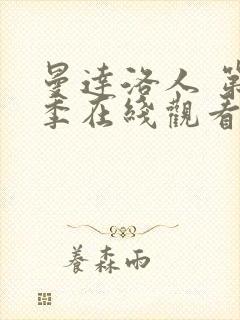 曼達洛人 第
季在綫觀看
養森雨